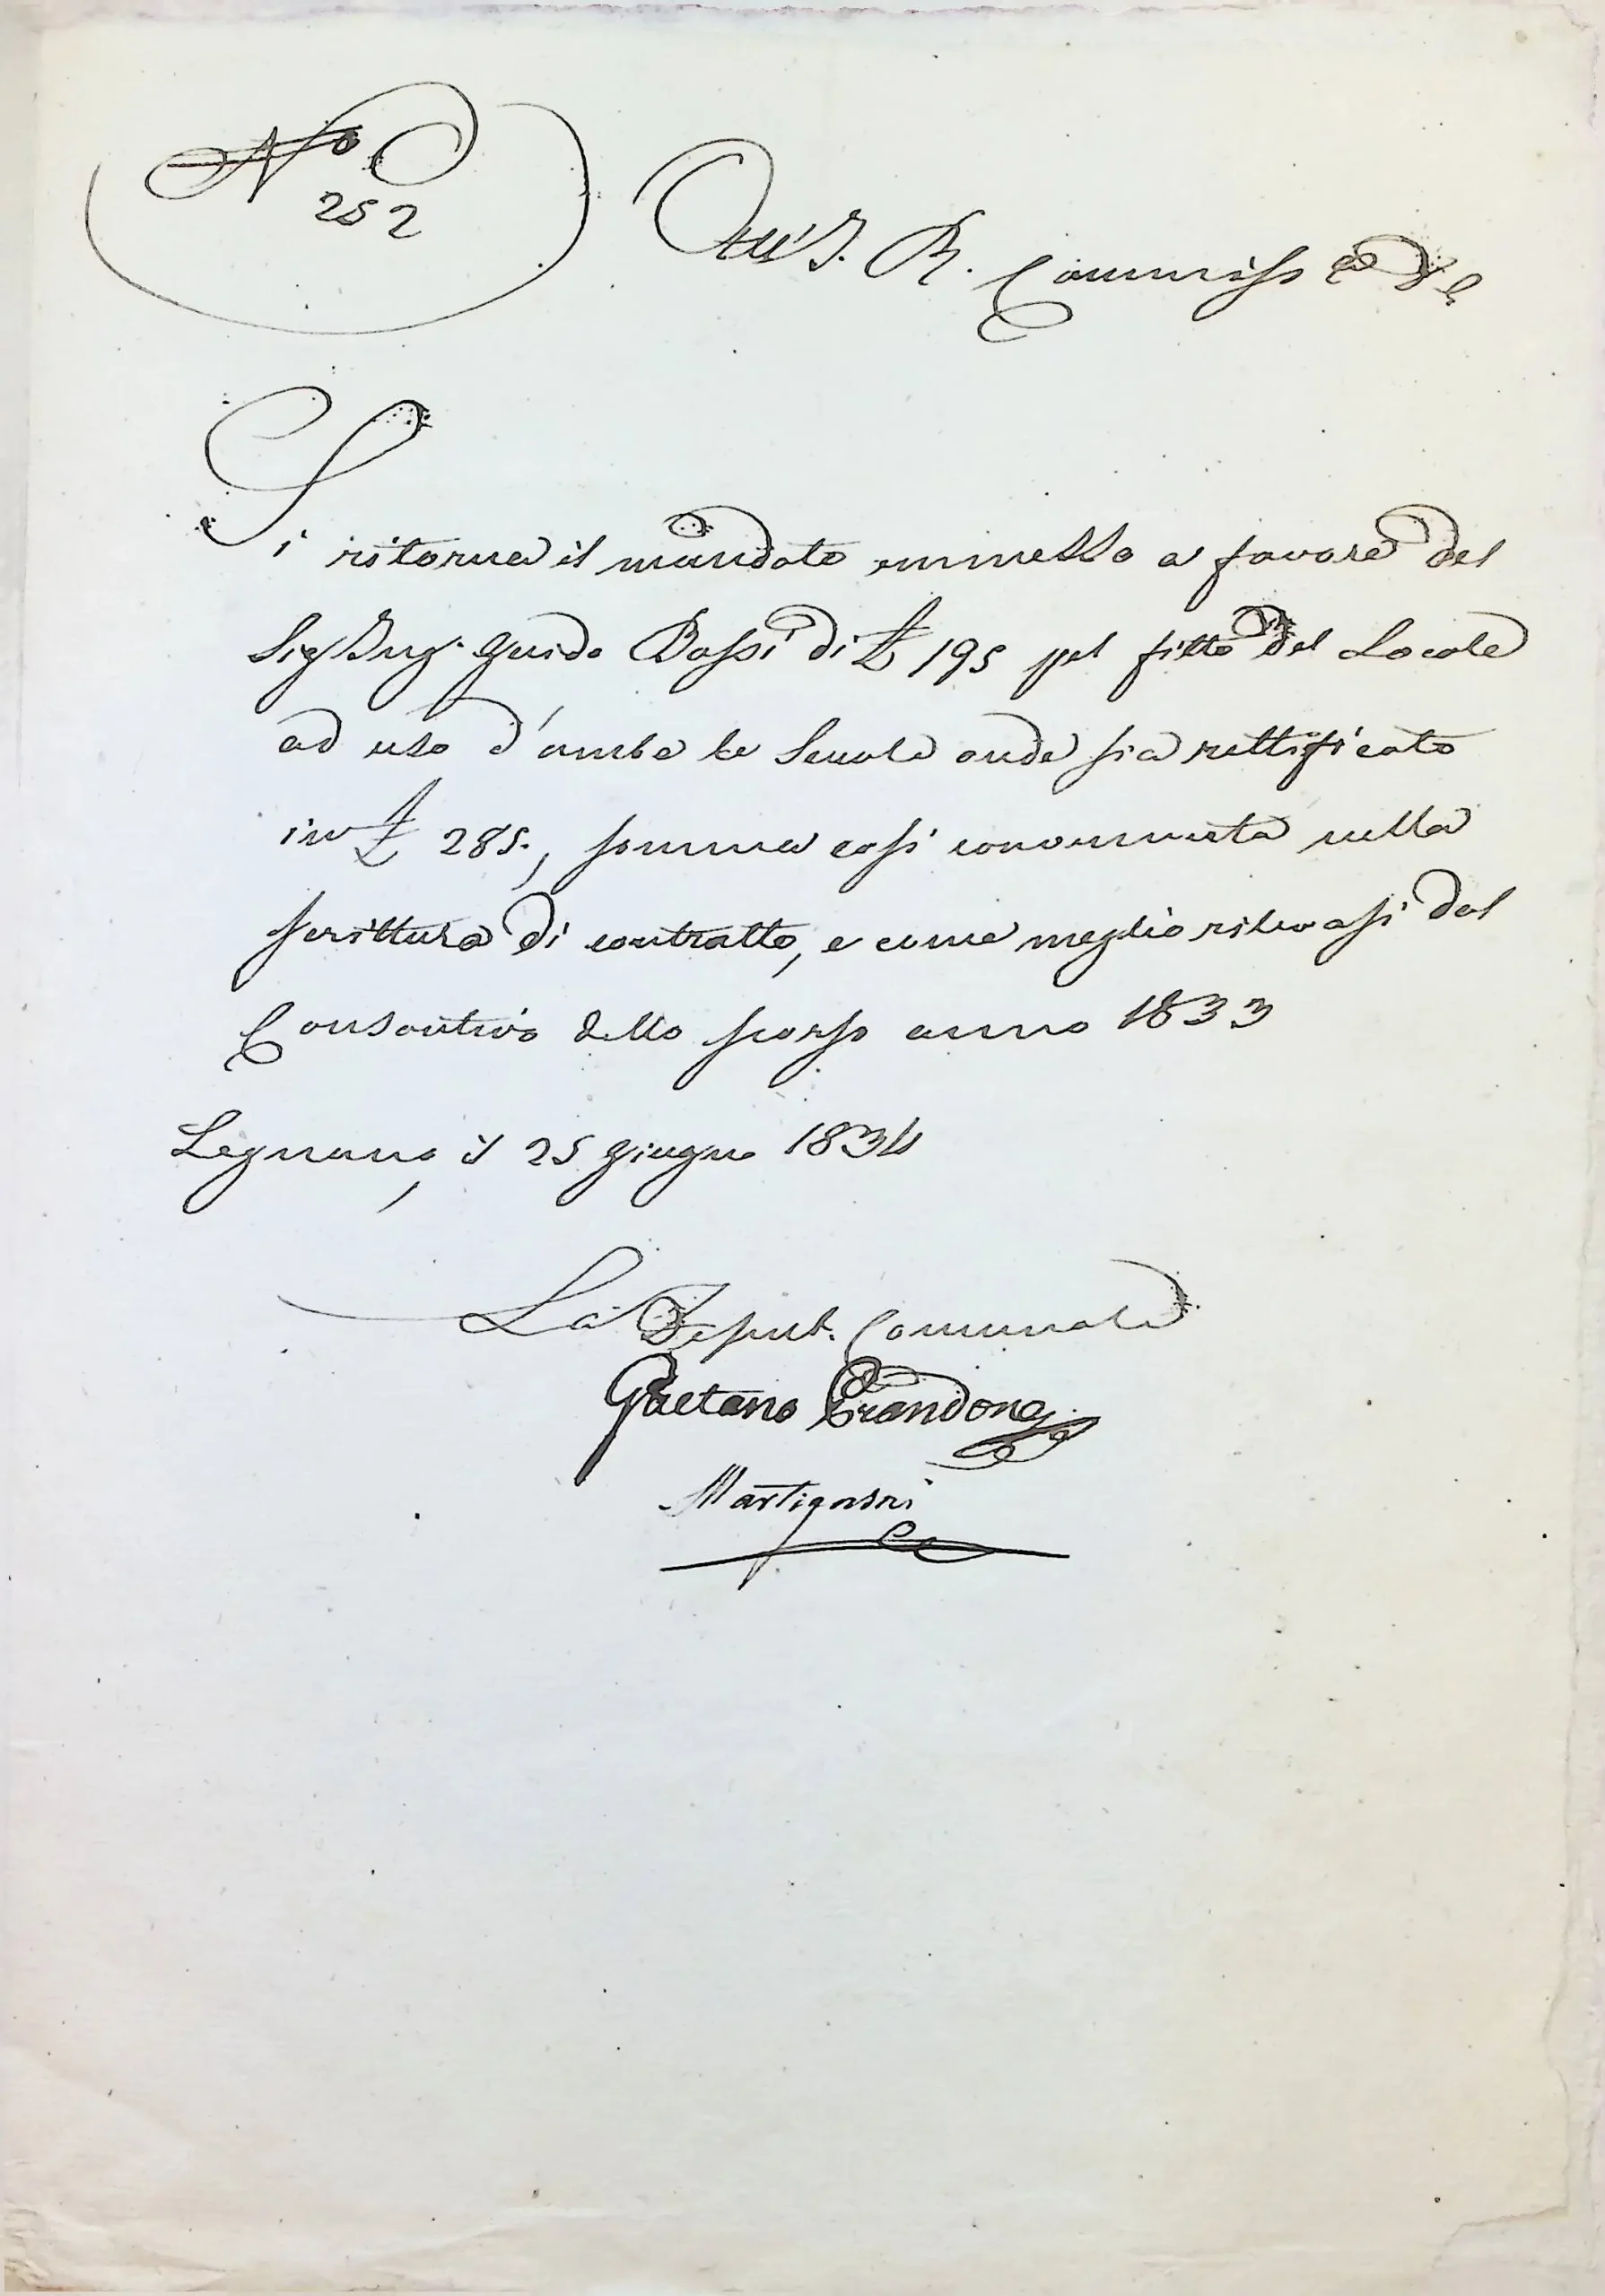 N.o
252
All' I. R. Commiss
Si ritorna il mandato emmesso a favore del
Sig Ing. Guido Bossi di £ 195 pel fitto del Locale
ad uso d'ambe le Scuole onde sia rettificato
in £ 285., somma così convenuta nella
scrittura di contratto, e come meglio rilevasi dal
Consontivo dello scorso anno 1833
Legnano, il 25 giugno 1834
La Deput. Comunale
Gaetano Prandoni
Martignoni